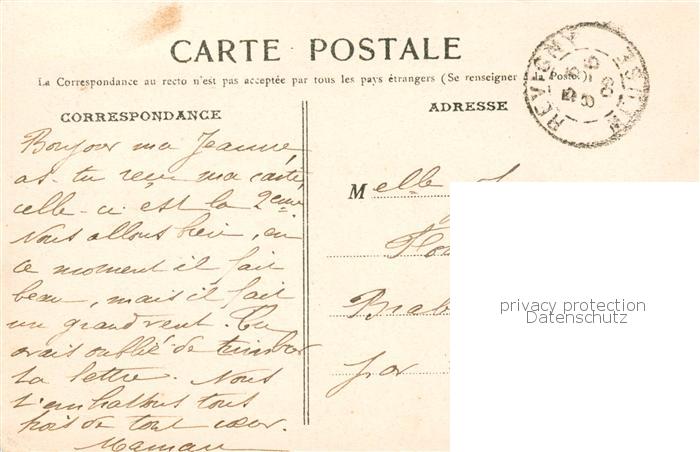 CARTE POSTALE
La Correspondance au recto n'est pas acceptée par tous les pays étrangers (Se renseigner Poste)
CORRESPONDANCE
ADRESSE
REVIGNY MEUSE
Bonjour ma Jeanne
as-tu reçu ma carte,
celle-ci est la 2eme
Nous allons bien, en
ce moment il fait
beau, mais il fait
un grand vent. Tu
avais oublié de timbrer
ta lettre. Nous
t'embrassons tous
de tout cœur.
Maman
Melle
par
privacy protection
Datenschutz